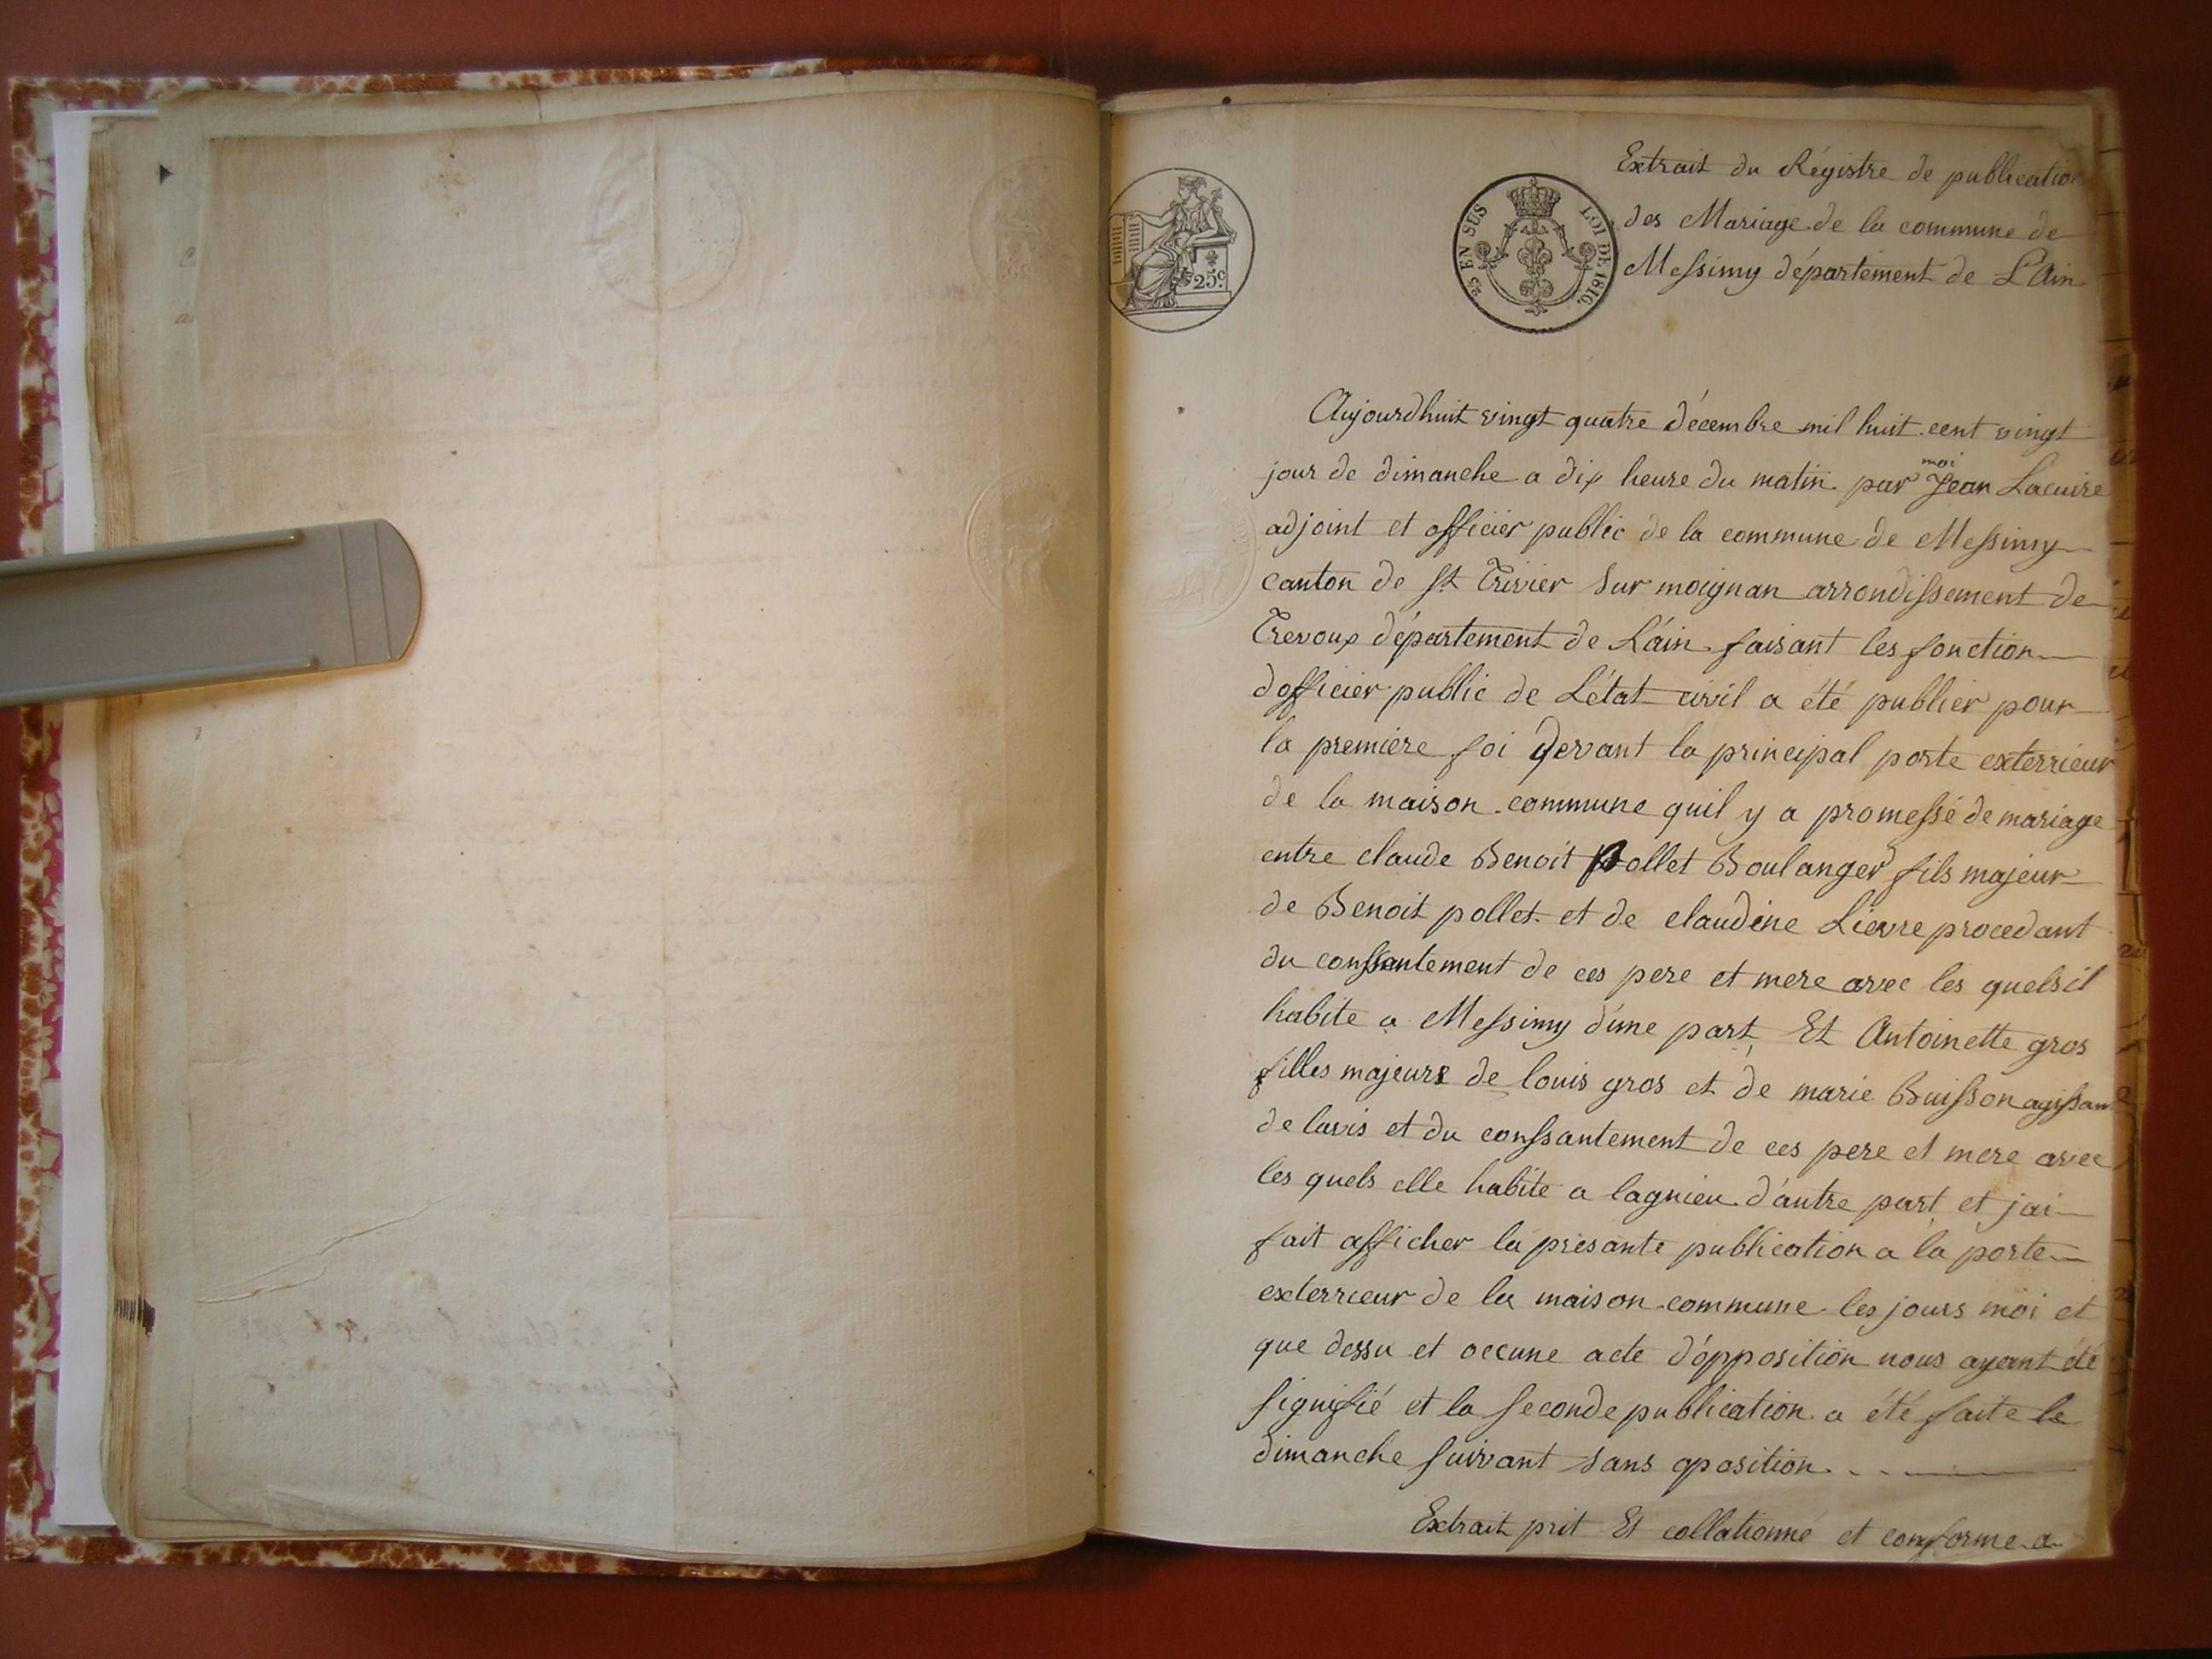 Extrait du Régistre de publication
des Mariage de la commune de
Messimy département de L'Ain
25 EN SUS LOI DE 1816.
25c.
Aujourdhuit vingt quatre décembre mil huit cent vingt
jour de dimanche a dix heure du matin par moi Jean Lacuire
adjoint et officier public de la commune de Messimy
canton de St Trivier sur moignan arrondissement de
Trevoux département de L'ain faisant les fonction
dofficier public de L'état civil a été publier pour
la premiere foi devant la principal porte exterrieur
de la maison commune quil y a promesse de mariage
entre claude Benoit Pollet Boulanger fils majeur
de Benoit pollet et de claudine Lievre procedant
du conssentement de ces pere et mere avec les quels il
habite a Messimy d'une part, Et Antoinette gros
filles majeurs de louis gros et de marie Buisson agissant
de lavis et du conssantement de ces pere et mere avec
les quels elle habite a lagnieu d'autre part et jai
fait afficher la présante publication a la porte
exterrieur de la maison commune les jours moi et
que dessu et occune acte d'opposition nous ayant été
signifié et la seconde publication a été faite le
dimanche suivant sans oposition
Extrait prit Et collationné et conforme a